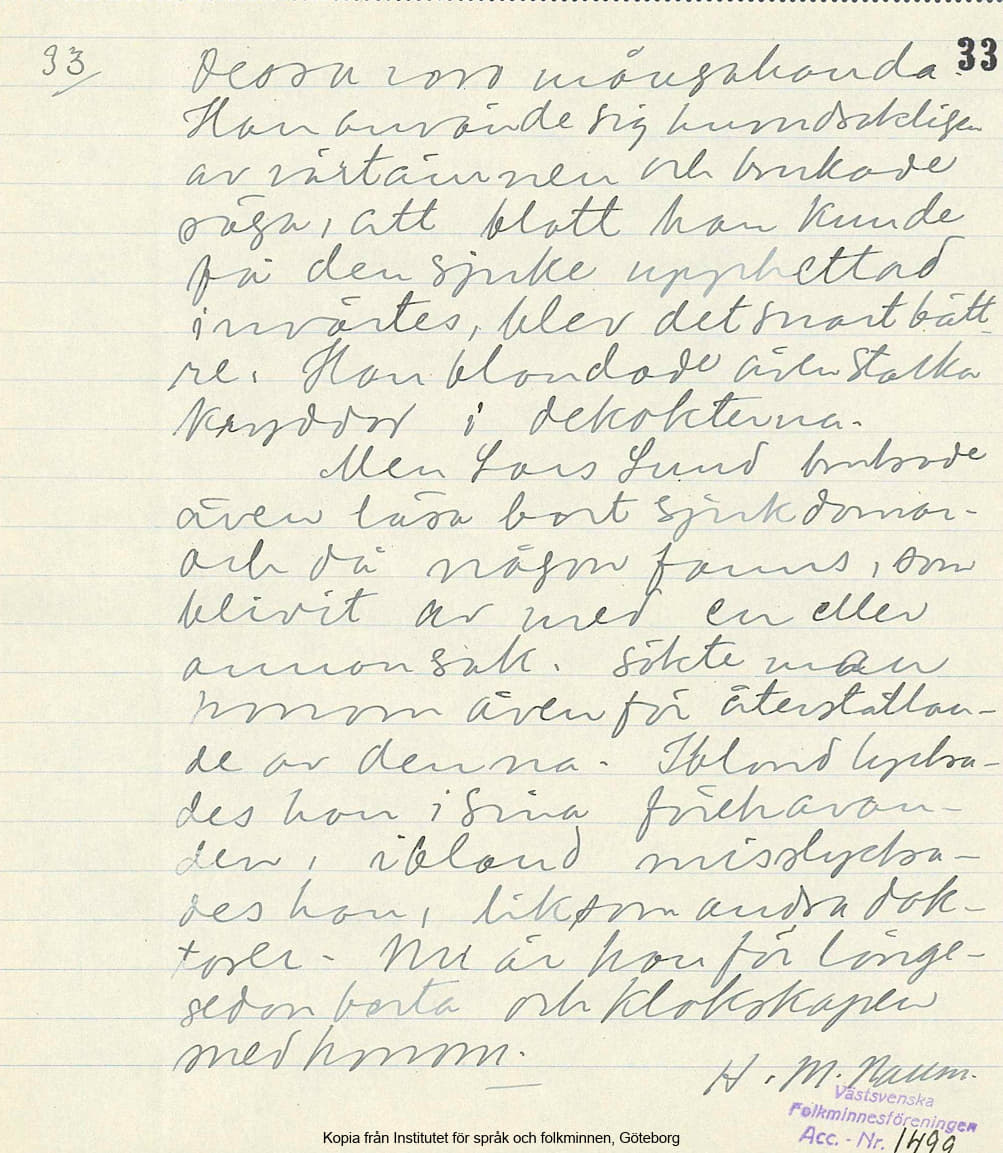 33
33
Dessa voro mångahanda.
Han använde sig huvudsakligen
av växtämnen och brukade
säga, att blott han kunde
få den sjuke upphettad
invärtes, blev det snart bätt-
re. Han blandade även starka
kryddor i dekokterna.
Men Lars Lund brukade
även läsa bort sjukdomar
och då någon fanns, som
blivit av med en eller
annan sak. sökte man
honom även för återställan-
de av denna. Ibland lycka-
des han i sina förehavan-
den, ibland misslycka-
des han, liksom andra dok-
torer. Nu är han för länge-
sedan borta och klokskapen
med honom.
H. M.
Västsvenska
Folkminnesföreningen
Acc. - Nr. 1499
Kopia från Institutet för språk och folkminnen, Göteborg